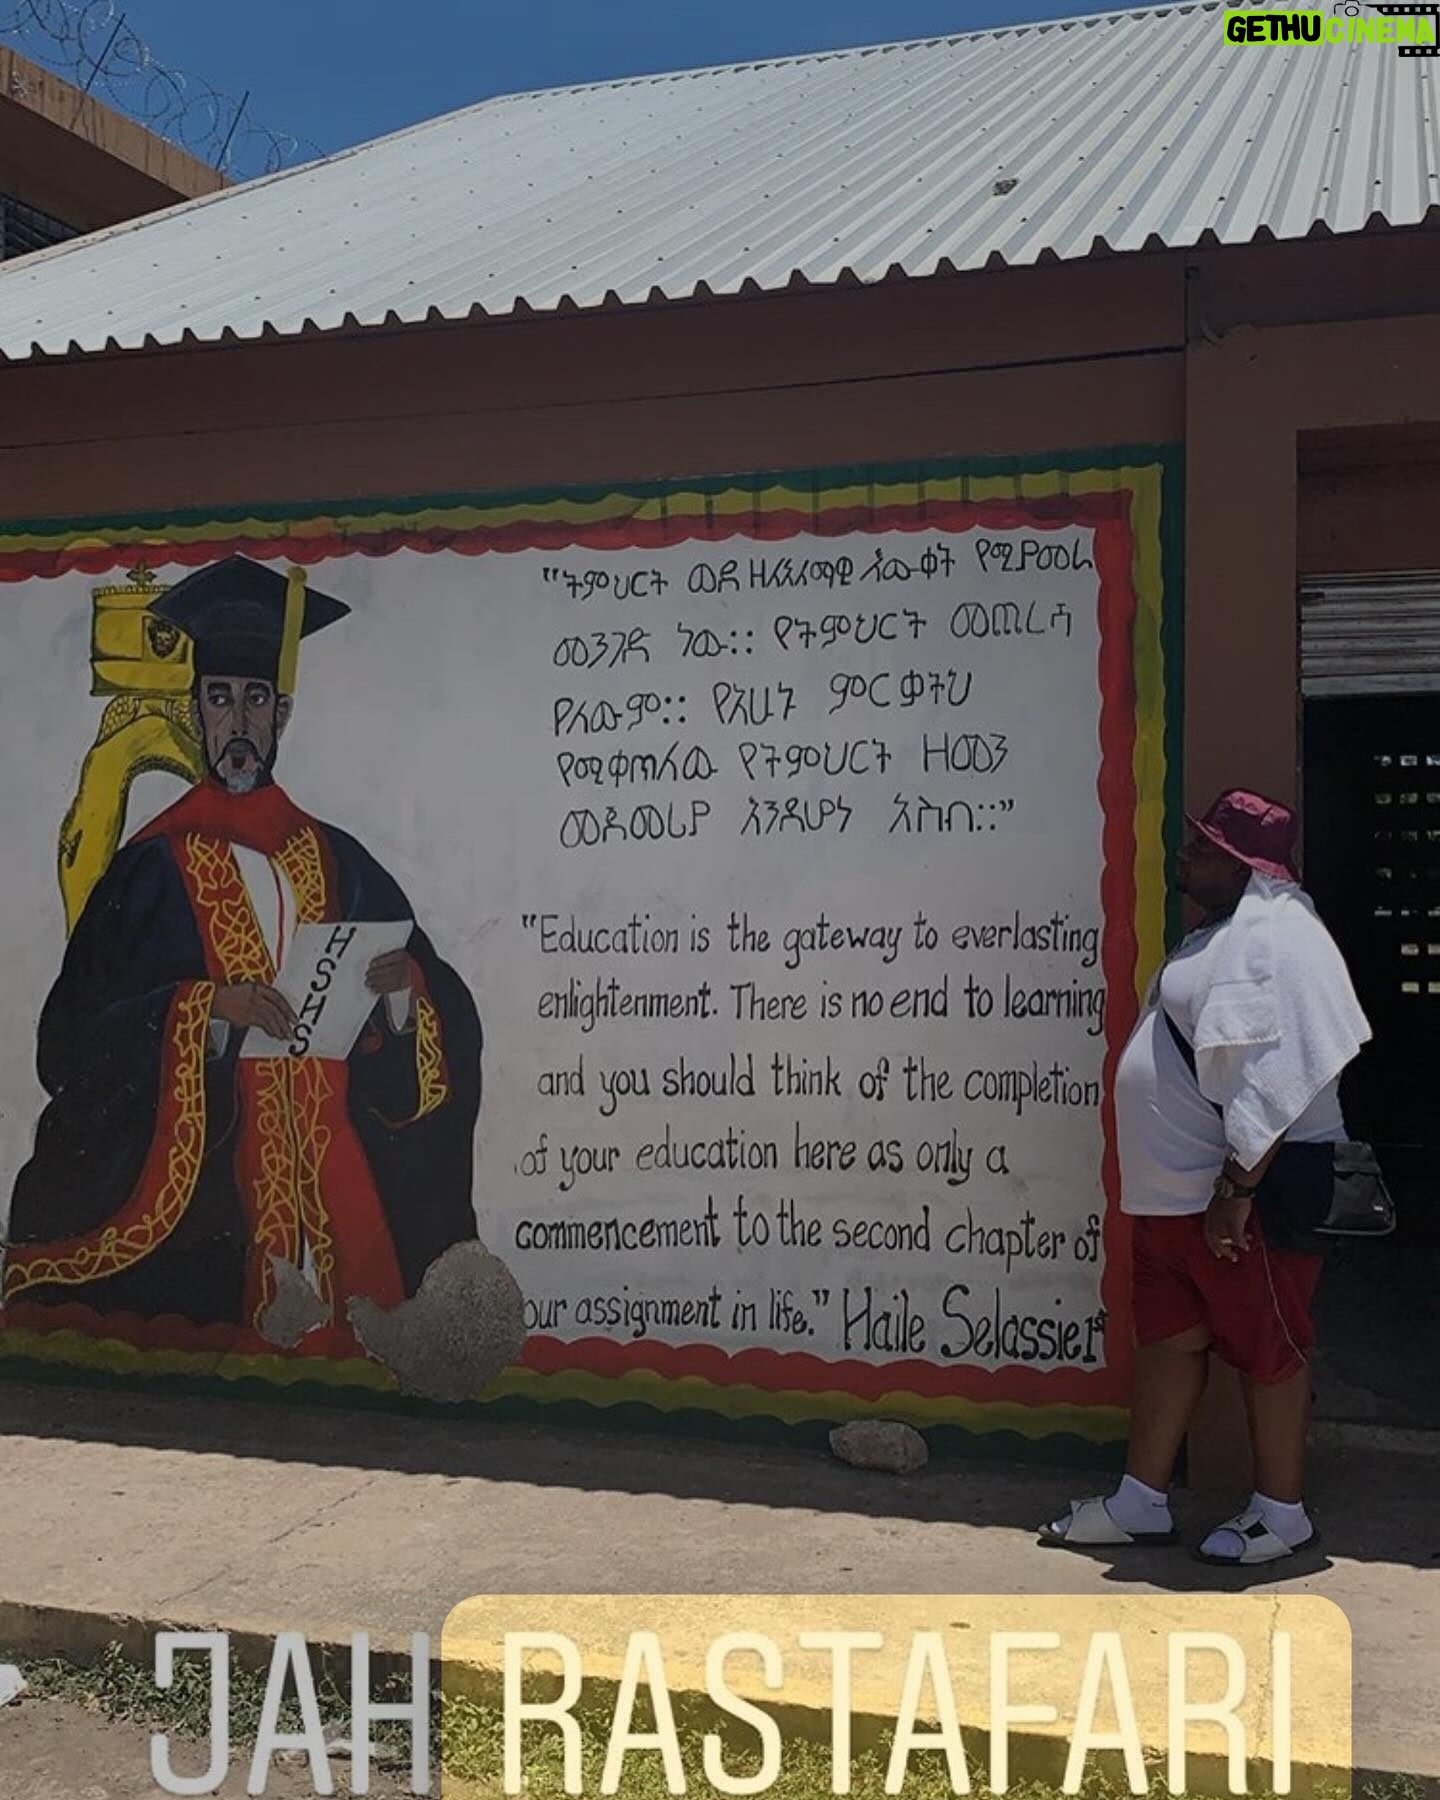 GETHUCINEMA
"ትምህርት ወደ ዘለአለማዊ እውቀት የሚያመራ
መንገድ ነው:: የትምህርት መጨረሻ
የለውም:: የአሁኑ ምርቃትህ
የሚቀጠለው የትምህርት ዘመን
መጀመሪያ እንደሆነ አስብ::"
"Education is the gateway to everlasting
enlightenment. There is no end to learning
and you should think of the completion
of your education here as only a
commencement to the second chapter of
our assignment in life." Haile Selassie 1st
HSHS
JAH RASTAFARI